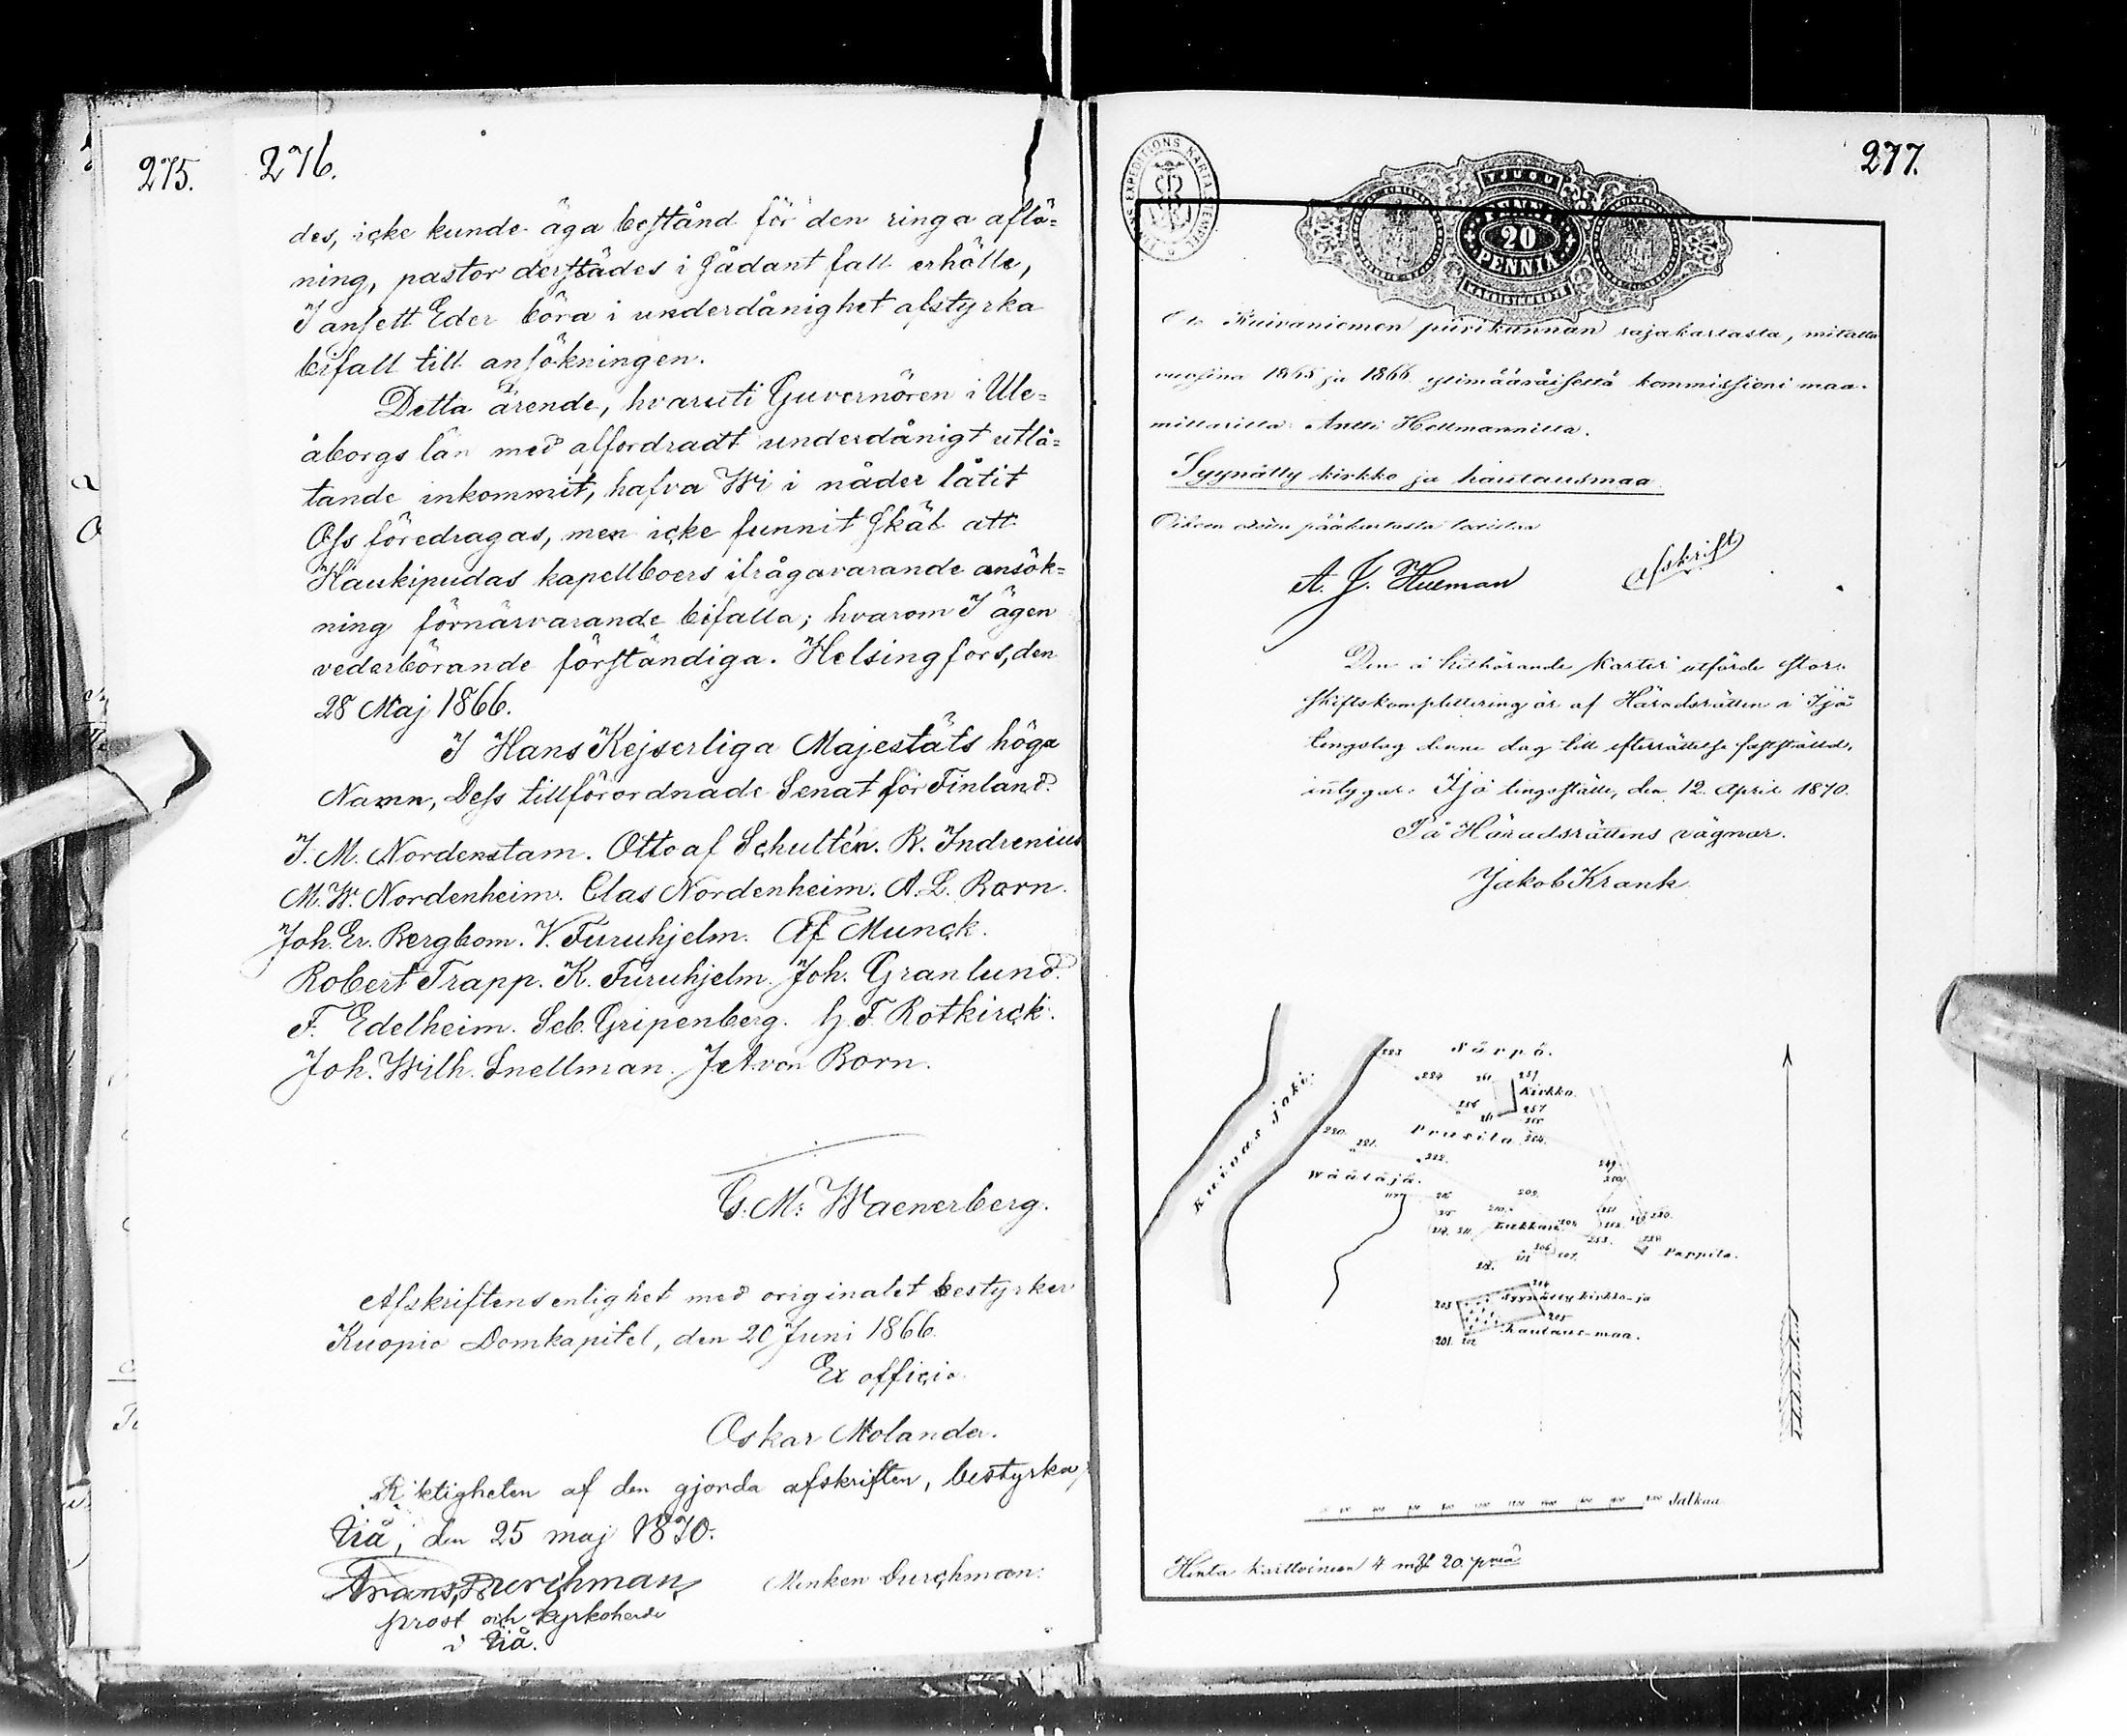 275.
276.
des, icke kunde äga bestånd för den ringa aflö=
ning, pastor derstädes i sådant fall erhölle,
I ansett Eder böra i underdånighet afstyrka
bifall till ansökningen.
Detta ärende, hvaruti Guvernören i Ule=
åborgs län med alfordradt underdånigt utlå=
tande inkommit, hafva Wi i nåder låtit
Oss föredragas, men icke funnit skäl att
Haukipudas kapellboers ifrågavarande ansök=
ning förnärvarande bifalla; hvarom I ägen
vederbörande förständiga. Helsingfors, den
28 Maj 1866.
I Hans Kejserliga Majestäts höga
Namn, Dess tillförordnade Senat för Finland.
J. M. Nordenstam. Otto af Schultén. B. Indrenius
M. W. Nordenheim. Clas Nordenheim. A. L. Born.
Joh. Er. Bergbom. V. Furuhjelm. Af Munck.
Robert Trapp. K. Furuhjelm. Joh. Granlund.
F. Edelheim. Seb. Gripenberg. H F Rotkirck.
Joh. Wilh. Snellman. J A von Born.
G. M: Waenerberg.
Afskriftens enlighet med originalet bestyrker
Kuopio Domkapitel, den 20 Juni 1866.
Ex officio
Oskar Molander.
Riktigheten af den gjorda afskriften, bestyrka,
Iiå, den 25 maj 1870.
Frans Durchman, Minken Durchman.
prost och kyrkoherde
i Iiå.
277.
EXPEDITIONS KARTA
20
PENNIÄ
Kuivaniemen piirikunnan rajakartasta, mitattu
vuosina 1865 ja 1866 ylimääräiseltä kommissioni maa-
mittarilta Antti Hellmannilta.
Syynätty kirkko ja hautausmaa
pääkartasta
A. J. Hueman
Afskrift
Den å hithörande karter utförde stor-
skiftskomplettering är af Häradsrätten i Ijå
tingslag denne dag till efterrättelse fastställd,
intygar. Ijå tingställe, den 12. April 1870.
På Häradsrättens vägnar.
Jakob Krank
Närpö.
223
224
251
Kirkko.
256
257
Kuivasjoki.
220.
221.
Prusila.
222.
Wäätäjä.
249.
250.
209.
253.
Pappila.
204
203
Syynätty kirkko- ja
205
201. 202
hautaus-maa.
Jalkaa.
Hinta karttoineen 4 mk 20 pniä